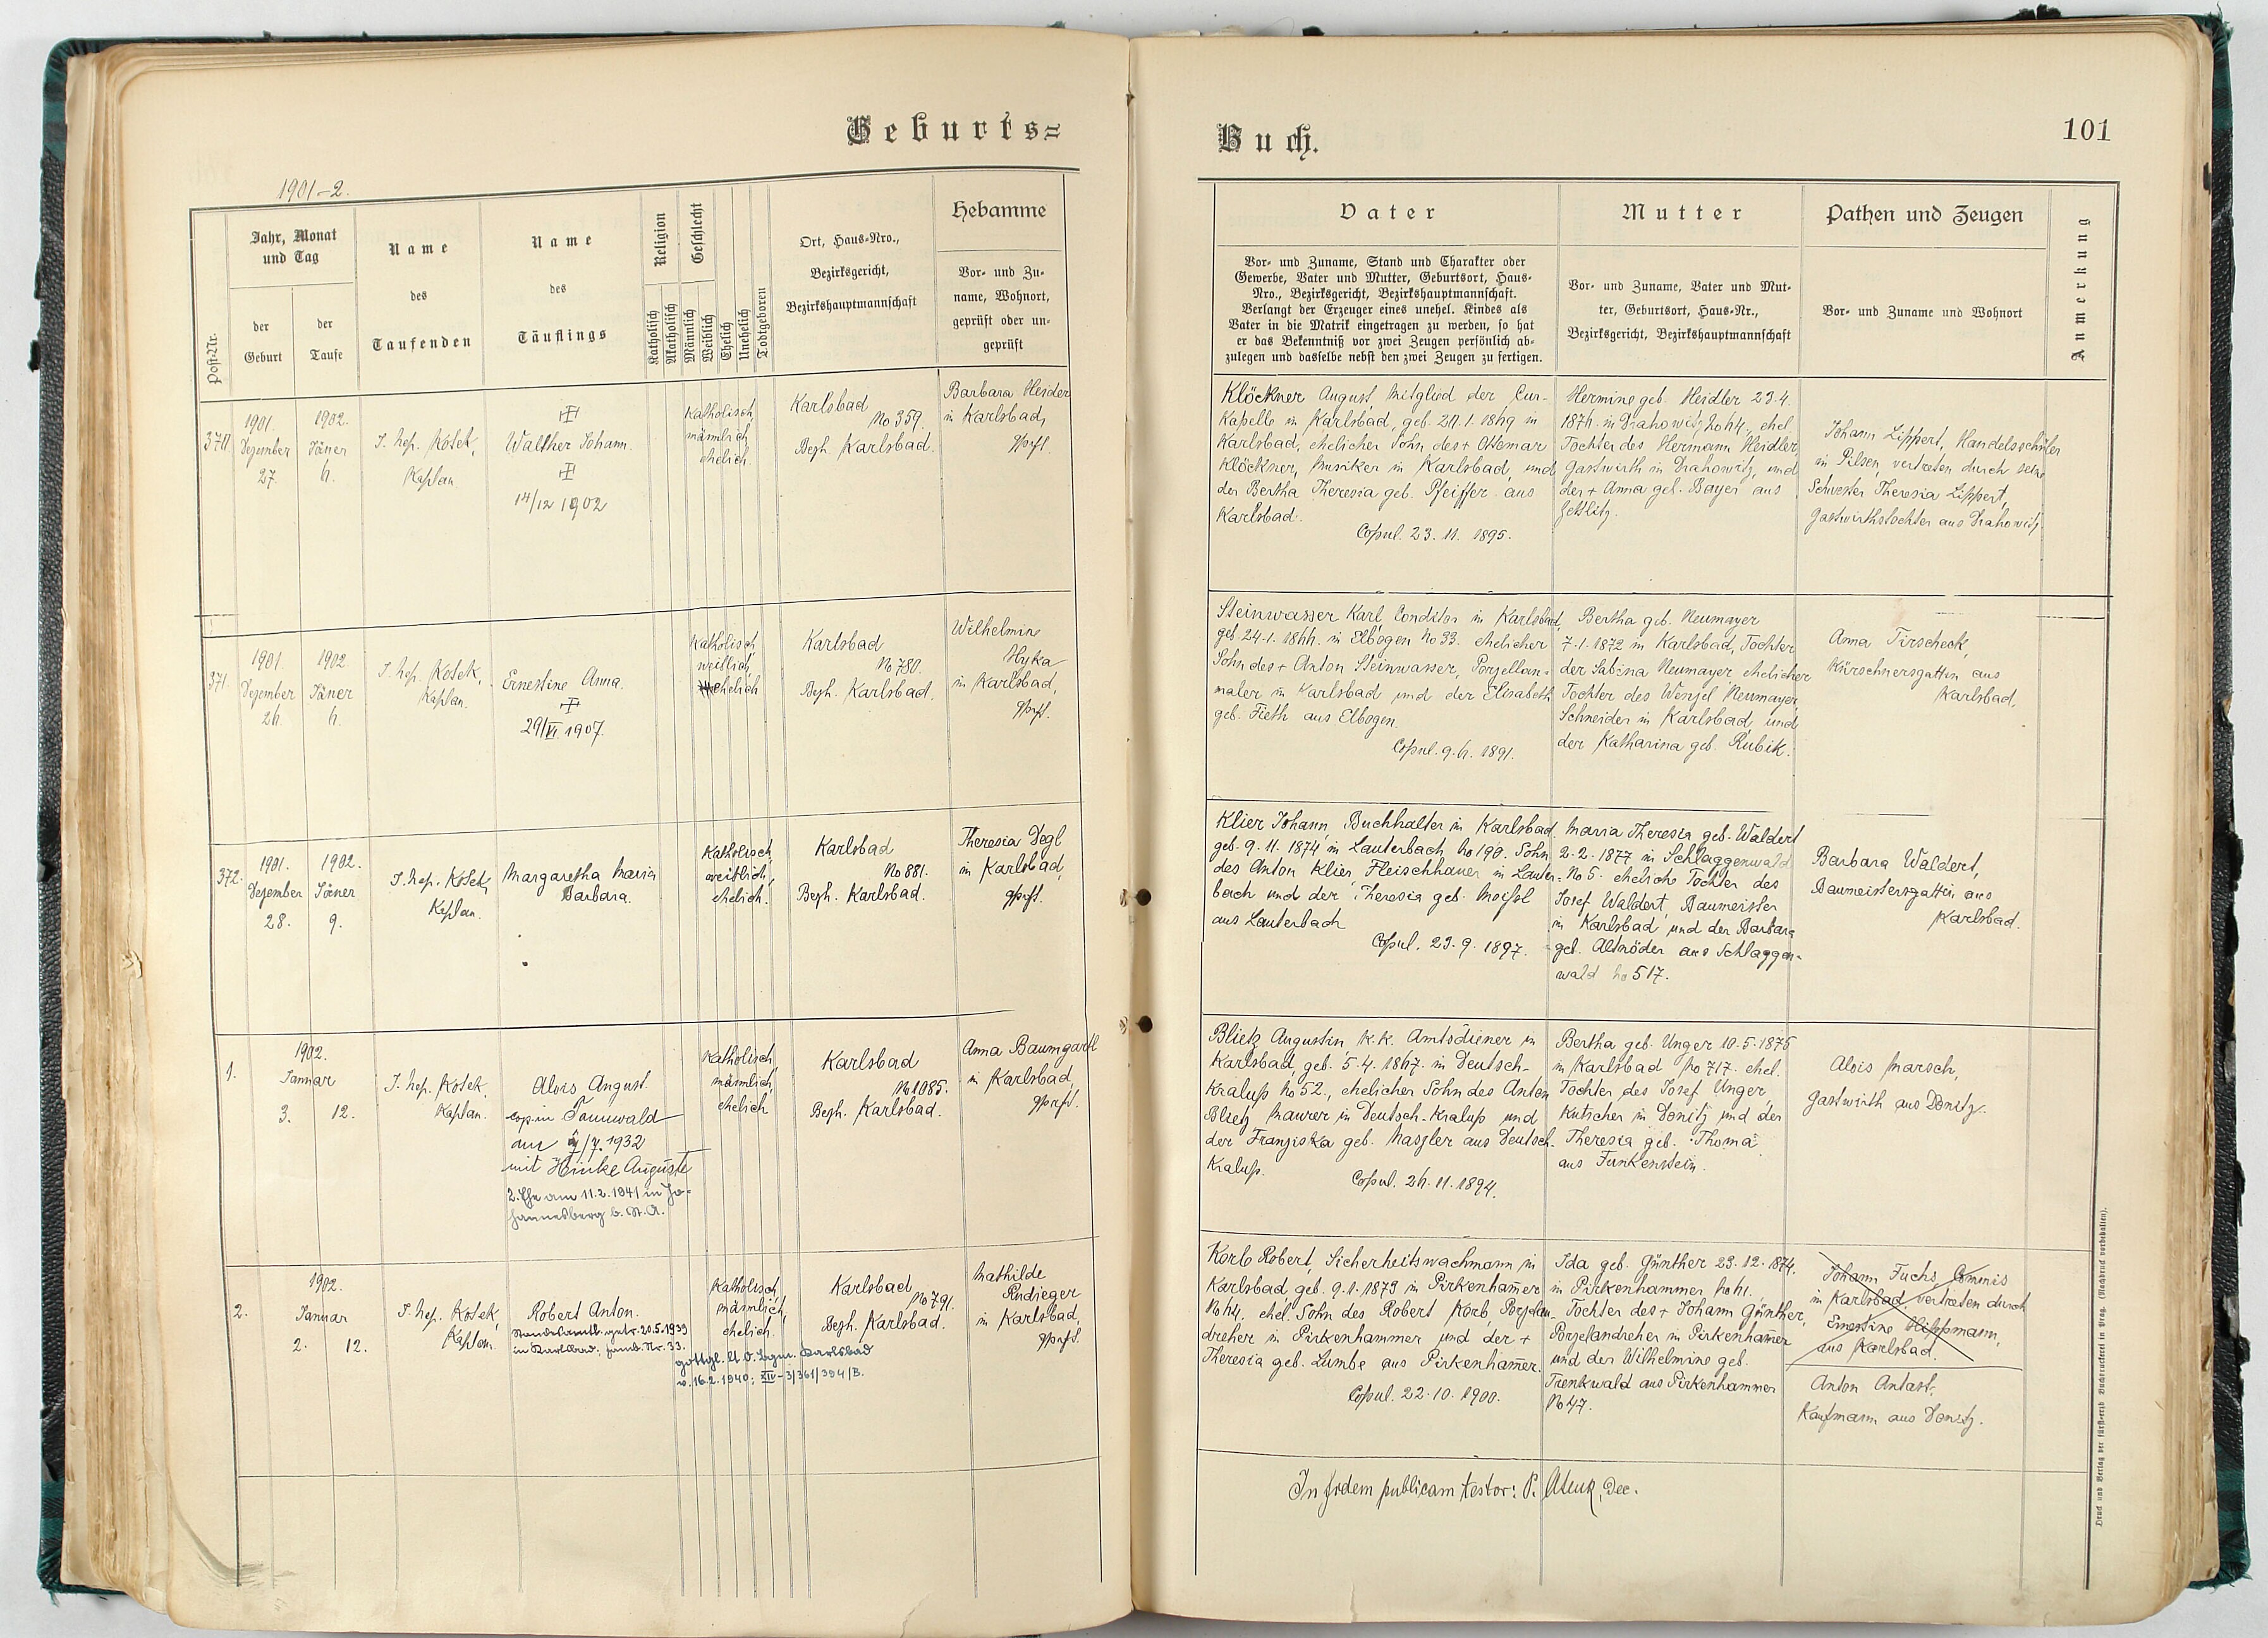 Geburts=
Buch.
101
1901-2.
Post-Nr.
Jahr, Monat
und Tag
der
Geburt
der
Taufe
Name
des
Taufenden
Name
des
Täuflings
Religion
Katholisch
Akatholisch
Geschlecht
Männlich
Weiblich
Ehelich
Unehelich
Todtgeboren
Ort, Haus-Nro.,
Bezirksgericht,
Bezirkshauptmannschaft
Hebamme
Vor- und Zu-
name, Wohnort,
geprüft oder un-
geprüft
Vater
Vor- und Zuname, Stand und Charakter oder
Gewerbe, Vater und Mutter, Geburtsort, Haus-
Nro., Bezirksgericht, Bezirkshauptmannschaft.
Verlangt der Erzeuger eines unehel. Kindes als
Vater in die Matrik eingetragen zu werden, so hat
er das Bekenntniß vor zwei Zeugen persönlich ab-
zulegen und dasselbe nebst den zwei Zeugen zu fertigen.
Mutter
Vor- und Zuname, Vater und Mut-
ter, Geburtsort, Haus-Nr.,
Bezirksgericht, Bezirkshauptmannschaft
Pathen und Zeugen
Vor- und Zuname und Wohnort
Anmerkung
1901.
Dezember
27.
1902.
Jäner
6.
J. Nep. Kosek,
Kaplan
Walther Johann.
14/12 1902
Katholisch
männlich
ehelich.
Karlsbad
No 359.
Bezh. Karlsbad.
Barbara Heider
in Karlsbad,
gprft.
Klöckner August Mitglied der Cur-
Kapelle in Karlsbad, geb. 1869 in
Karlsbad, ehelicher Sohn des + Ottomar
Klöckner, Musiker in Karlsbad, und
der Bertha Theresia geb. Pfeiffer aus
Karlsbad.
Copul. 23. 11. 1895.
Hermine geb. Heidler 23.4.
1876. in Drahowitz No 64., ehel.
Tochter des Hermann Heidler,
Gastwirth in Drahowitz, und
der + Anna geb. Bayer aus
Zettlitz.
Johann Lippert, Handelsschüler
in Pilsen, vertreten durch seine
Schwester Theresia Lippert,
Gastwirthstochter aus Drahowitz.
371.
1901.
Dezember
26.
1902
Jäner
6.
J. Nep. Kosek,
Kaplan.
Ernestine Anna.
29/VI. 1907.
Katholisch
weiblich,
ehelich
Karlsbad
No 780.
Bezh. Karlsbad.
Wilhelmine
Hyka
in Karlsbad,
gprft.
Steinwasser Karl, Conditor in Karlsbad,
geb. 24.1. 1866. in Elbogen No 33. ehelicher
Sohn des + Anton Steinwasser, Porzellan-
maler in Karlsbad und der Elisabeth
geb. Fieth aus Elbogen.
Copul. 9. 6. 1891.
Bertha geb. Neumayer
7.1.1872 in Karlsbad, Tochter
der Sabina Neumayer ehelicher
Tochter des Wenzel Neumayer,
Schneider in Karlsbad und
der Katharina geb. Kubik.
Anna Tirscheck,
Kürschnersgattin aus
Karlsbad,
372.
1901.
Dezember
28.
1902.
Jäner
9.
J. Nep. Kosek,
Kaplan.
Margaretha Maria
Barbara.
Katholisch,
weiblich,
ehelich.
Karlsbad
No 881.
Bezh. Karlsbad.
Theresia Degl
in Karlsbad,
gprft.
Klier Johann, Buchhalter in Karlsbad
geb. 9. 11. 1874 in Lauterbach No 190. Sohn
des Anton Klier, Fleischhauer in Lauter-
bach und der Theresia geb. Moissl
aus Lauterbach
Copul. 23. 9. 1897.
Maria Theresia geb. Waldert
2.2.1877 in Schlaggenwald
No 5. eheliche Tochter des
Josef Waldert, Baumeister
in Karlsbad und der Barbara
geb. Altnöder aus Schlaggen-
wald No 517.
Barbara Waldert,
Baumeistersgattin aus
Karlsbad.
1.
1902.
Januar
3. 12.
J. Nep. Kosek,
Kaplan.
Alois August.
cop. in Tannwald
am /7. 1932
mit Hinke Auguste
2. Ehe am 11.2.1941 in Jo-
hannesberg b. St. A.
Katholisch,
männlich,
ehelich
Karlsbad
No 1085.
Bezh. Karlsbad.
Anna Baumgartl
in Karlsbad,
gprft.
Blietz Augustin K.K. Amtsdiener in
Karlsbad, geb. 5.4. 1867. in Deutsch-
Kralup No 52., ehelicher Sohn des Anton
Blietz, Maurer in Deutsch-Kralup und
der Franziska geb. Naszler aus Deutsch-
Kralup.
Copul. 26. 11. 1894.
Bertha geb. Unger 10.5.1875
in Karlsbad No 717. ehel.
Tochter des Josef Unger,
Kutscher in Donitz und der
Theresia geb. Thoma
aus Funkenstein.
Alois Marsch,
Gastwirth aus Donitz.
2.
1902.
Januar
2. 12.
J. Nep. Kosek,
Kaplan.
Robert Anton.
Standesamtl. getr. 20.5.1939
in Karlsbad; Nr. 33.
Katholisch,
männlich,
ehelich.
gottgl. lt. Karlsbad
v. 16.2.1940; XIV-3/361/394/B.
Karlsbad
No 791.
Bezh. Karlsbad.
Mathilde
Rudieger
in Karlsbad,
gprft.
Korb Robert, Sicherheitswachmann in
Karlsbad, geb. 9.1. 1873 in Pirkenhamer
No 64. ehel. Sohn des Robert Korb, Porzelan-
dreher in Pirkenhammer und der +
Theresia geb. Lumbe aus Pirkenhamer.
Copul. 22. 10. 1900.
Ida geb. Günther 23.12.1874.
in Pirkenhammer No 61.,
Tochter des + Johann Günther,
Porzelandreher in Pirkenhamer
und der Wilhelmine geb.
Trenkwald aus Pirkenhammer
No 47.
Johann Fuchs, Commis
in Karlsbad, vertreten durch
Ernestine Hippmann,
aus Karlsbad.
Anton Antast,
Kaufmann aus Donitz.
In fidem publicam testor: P. Dec.
Druck und Verlag der fürst-erzb. Buchdruckerei in Prag. (Nachdruck vorbehalten).